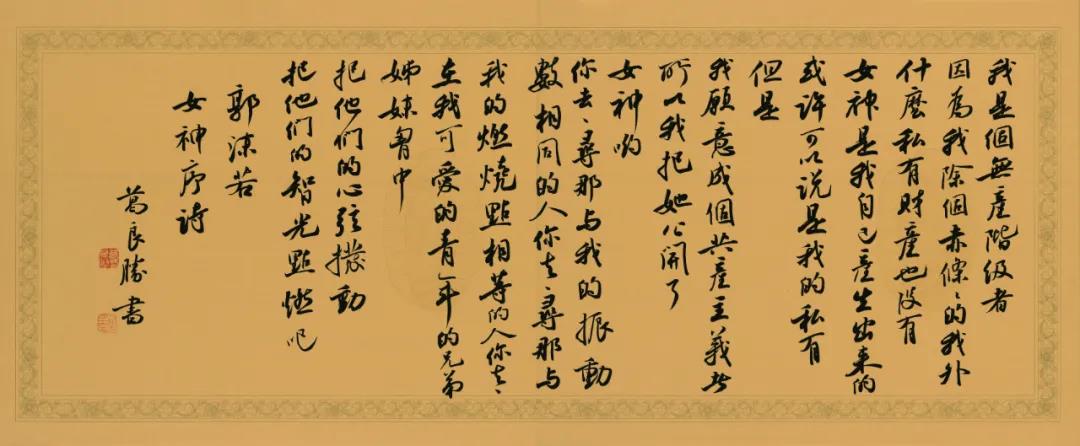 我是個無產階級者
因為我除個赤條〻的我外
什麼私有财產也没有
女神是我自己產生出来的
或许可以说是我的私有
但是
我願意成個共產主義者
所以我把她公開了
女神喲
你去〻尋那与我的振動
數相同的人你去〻尋那与
我的燃燒點相等的人你去〻
在我可愛的青年的兄弟
姊妹胷中
把他们的心弦撥動
把他们的智光點燃吧
郭沫若
女神序诗
葛良勝書